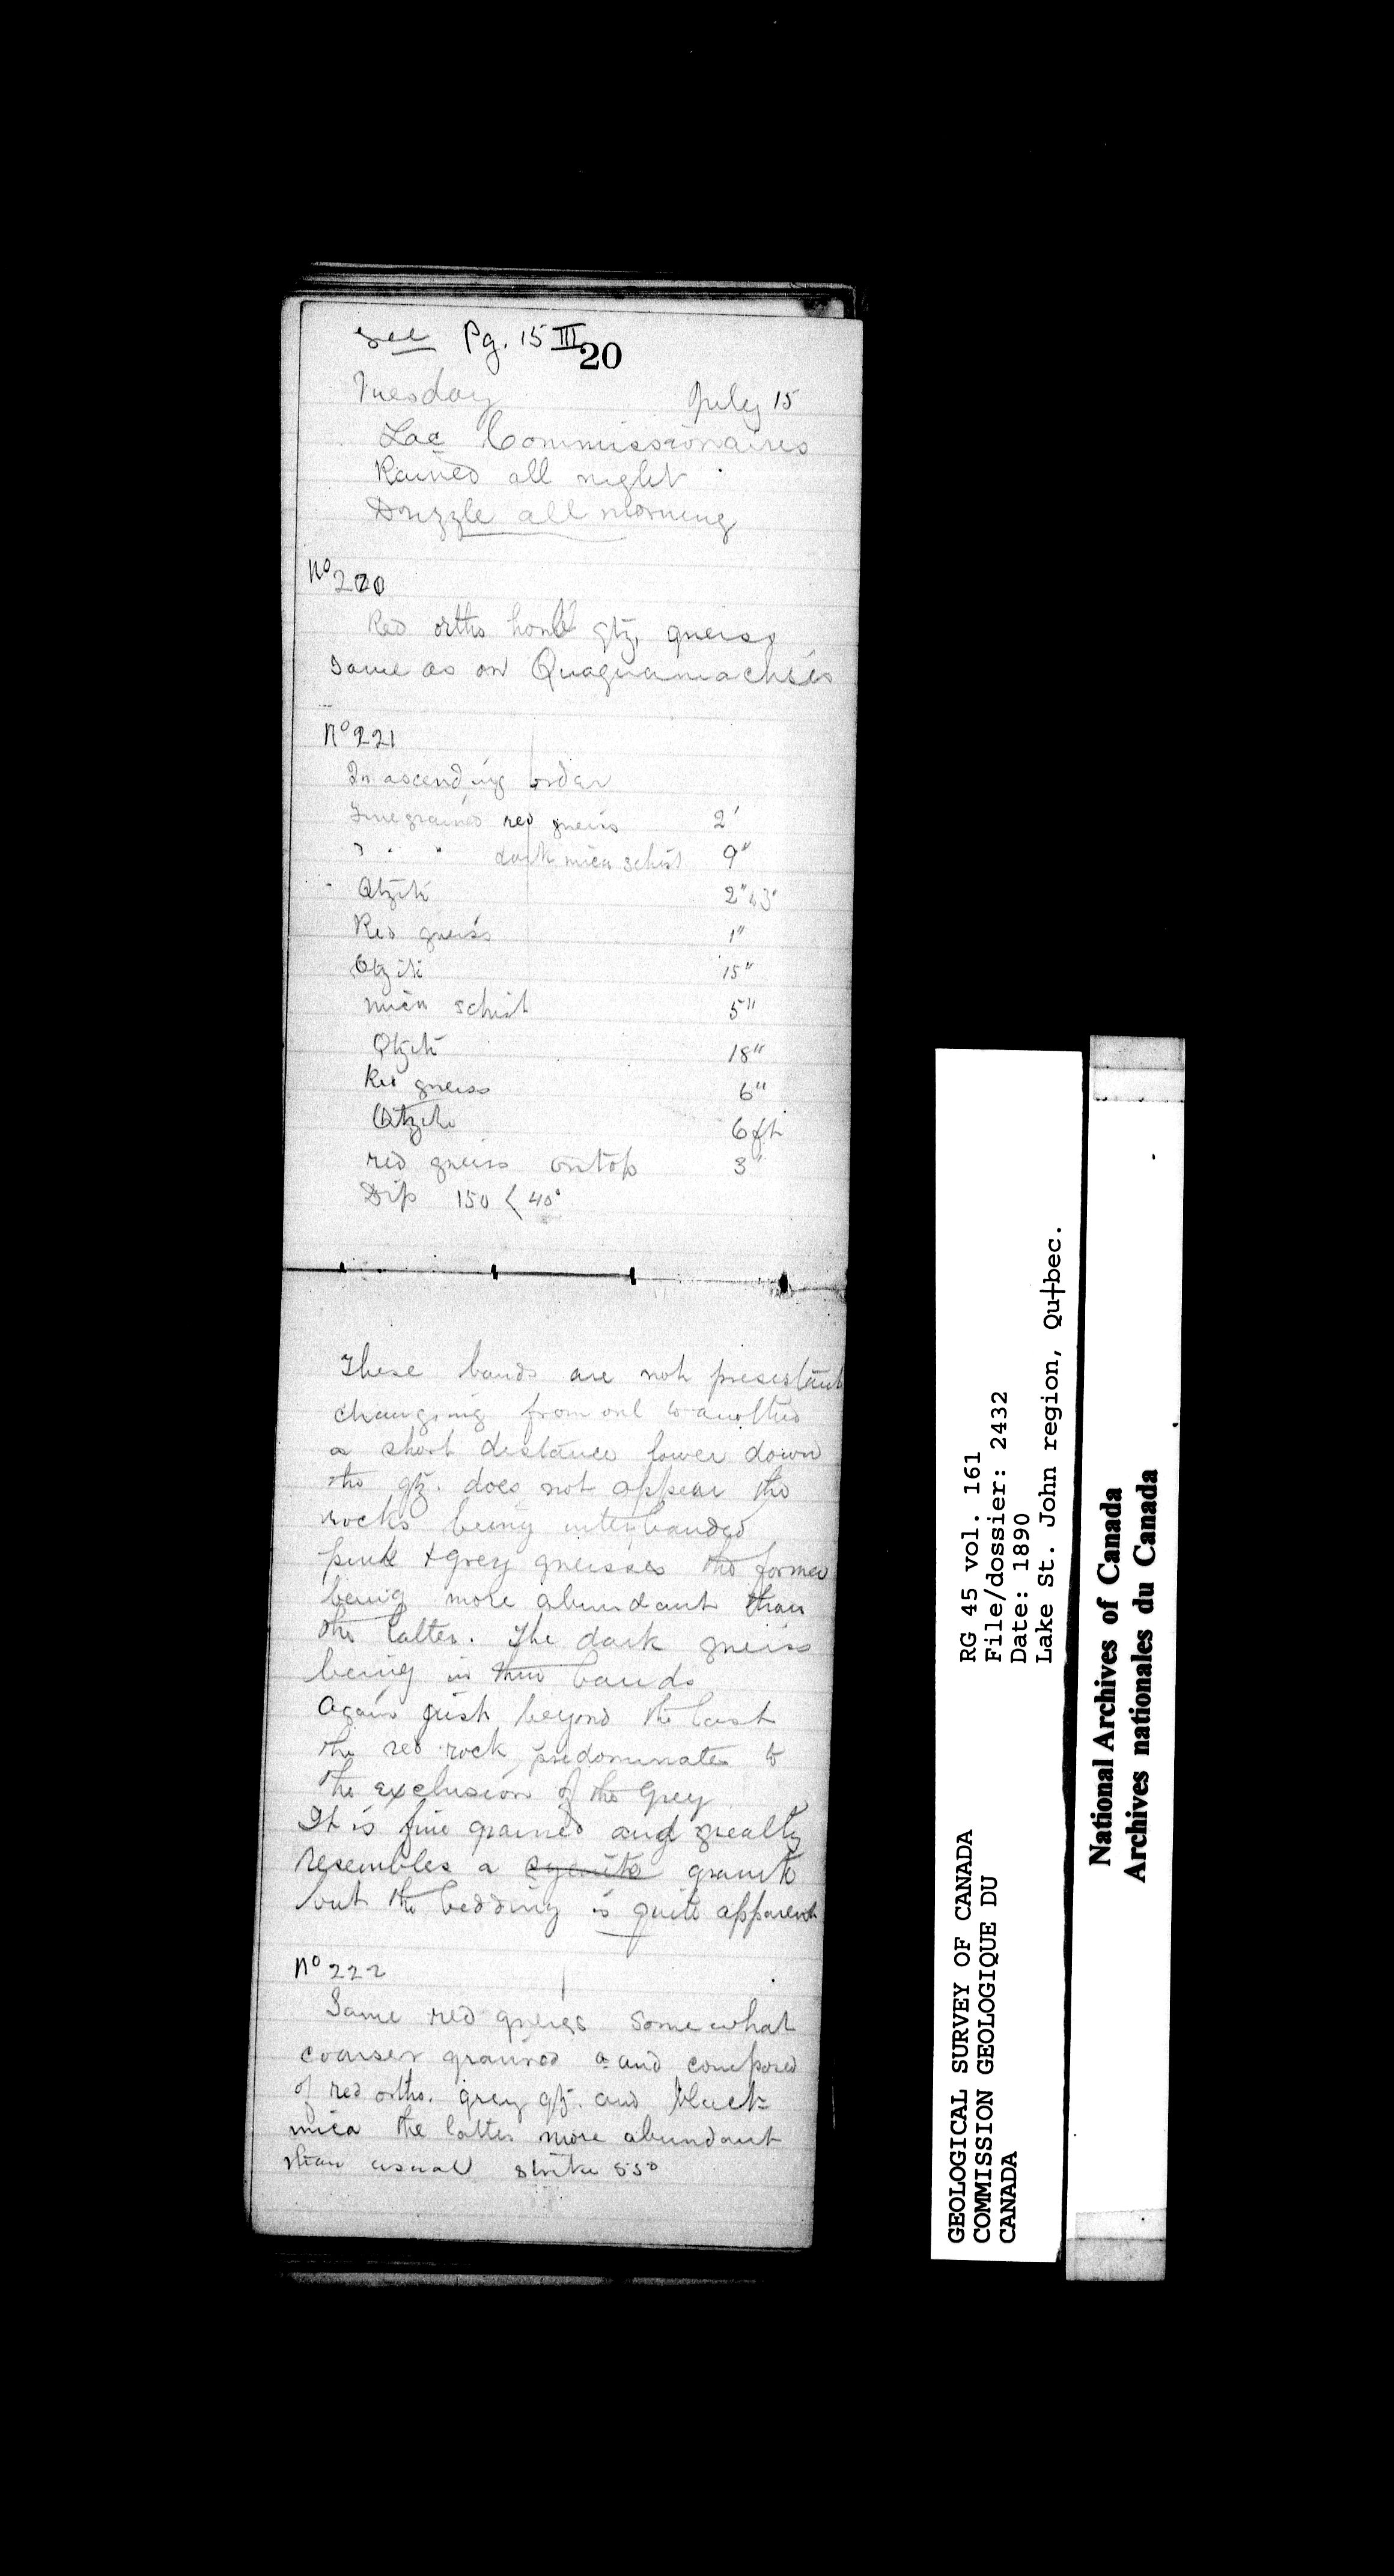 see Pg. 15 III
20
Tuesday July 15
Lac Commissionaires
Rained all night
Drizzle all morning
No 220
Red ortho hornb qtz. gneiss
same as on Quaquamachsis
No 221
In ascending order
Fine grained red gneiss 2'
" " " dark mica schist 9"
Qtzite 2" to 3"
Red gneiss 1"
Qtzite 15"
mica schist 5"
Qtzite 18"
Red gneiss 6"
Qtzite 6 ft
red gneiss on top 3"
Dip 150 < 40°
These bands are not presistant
changing from one to another
a short distance lower down
the qtz. does not appear the
rocks being interbanded
pink + grey gneisses the former
being more abundant than
the latter. The dark gneiss
being in thin bands
Again just beyond the last
the red rock predominates to
the exclusion of the Grey
It is fine grained and greatly
resembles a syenite granite
but the bedding is quite apparent
No 222
Same red gneiss somewhat
coarser grained and composed
of red ortho. grey qtz. and black
mica the latter more abundant
than usual strike 55°
GEOLOGICAL SURVEY OF CANADA
COMMISSION GEOLOGIQUE DU
CANADA
RG 45 vol. 161
File/dossier: 2432
Date: 1890
Lake St. John region, Qu†bec.
National Archives of Canada
Archives nationales du Canada